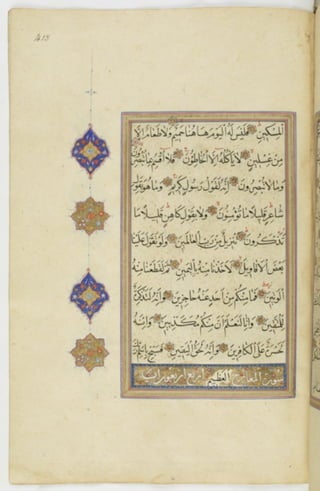 413
المسكين فليس له اليوم هاهنا حميم ولا طعام الا
من غسلين لا ياكله الا الخاطئون فلا اقسم بما تبصرون
وما لا تبصرون انه لقول رسول كريم وما هو بقول
شاعر قليلا ما تؤمنون ولا بقول كاهن قليلا ما
تذكرون تنزيل من رب العالمين ولو تقول علينا
بعض الاقاويل لاخذنا منه باليمين ثم لقطعنا منه
الوتين فما منكم من احد عنه حاجزين وانه لتذكرة
للمتقين وانا لنعلم ان منكم مكذبين وانه
لحسرة على الكافرين وانه لحق اليقين فسبح باسم ربك
سورة المعارج العظيم اربع اربعون